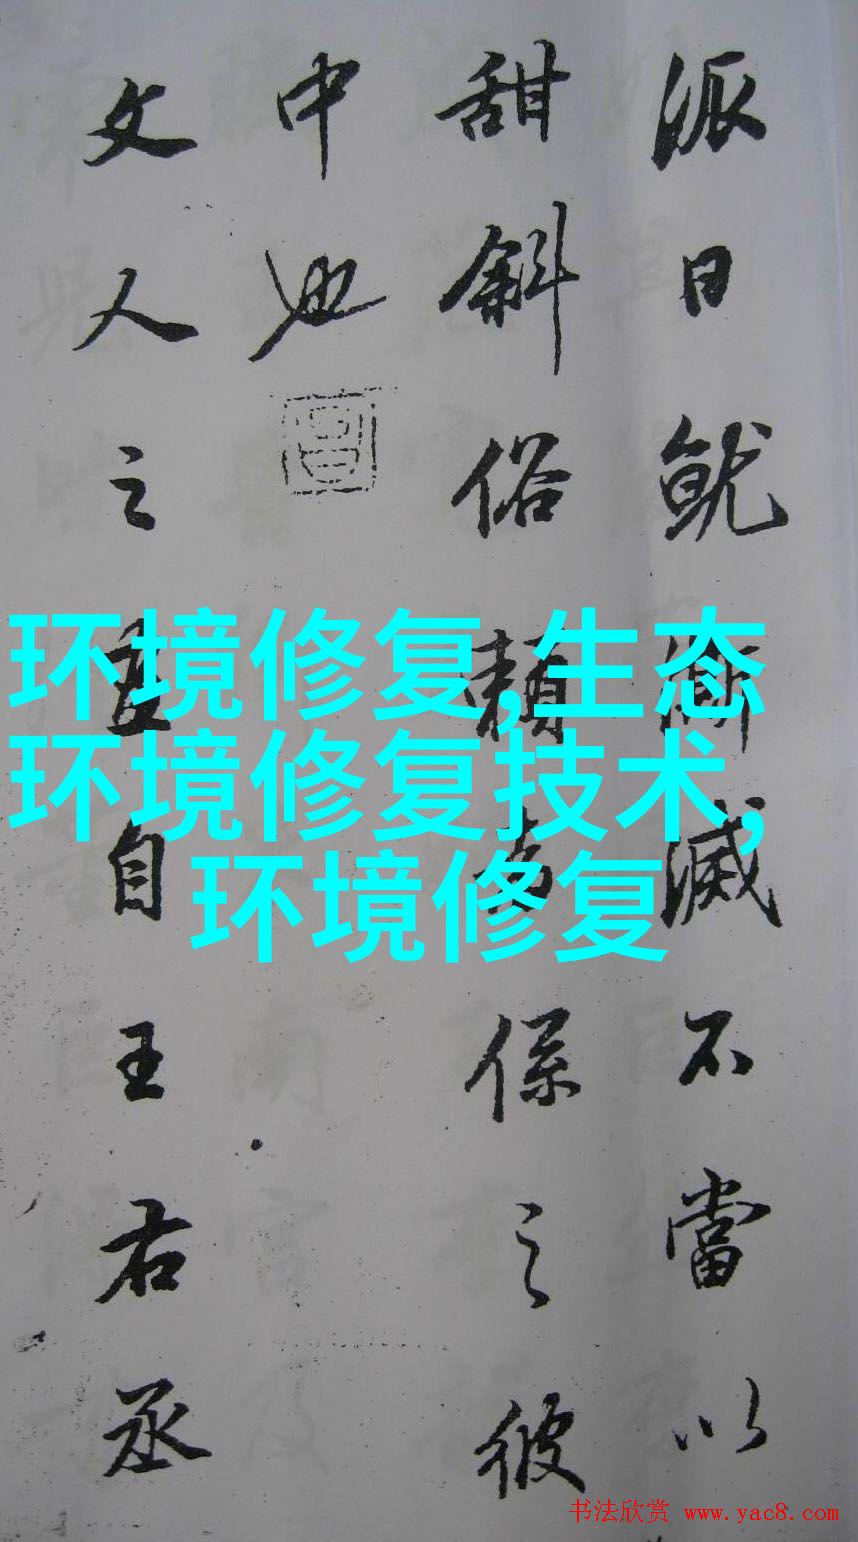 派日就漸滅不當以
甜斜俗賴者係之彼
中也
文人之畫自王右丞
环境修复,生态
环境修复技术,
环境修复
书法欣赏 www.yac8.com